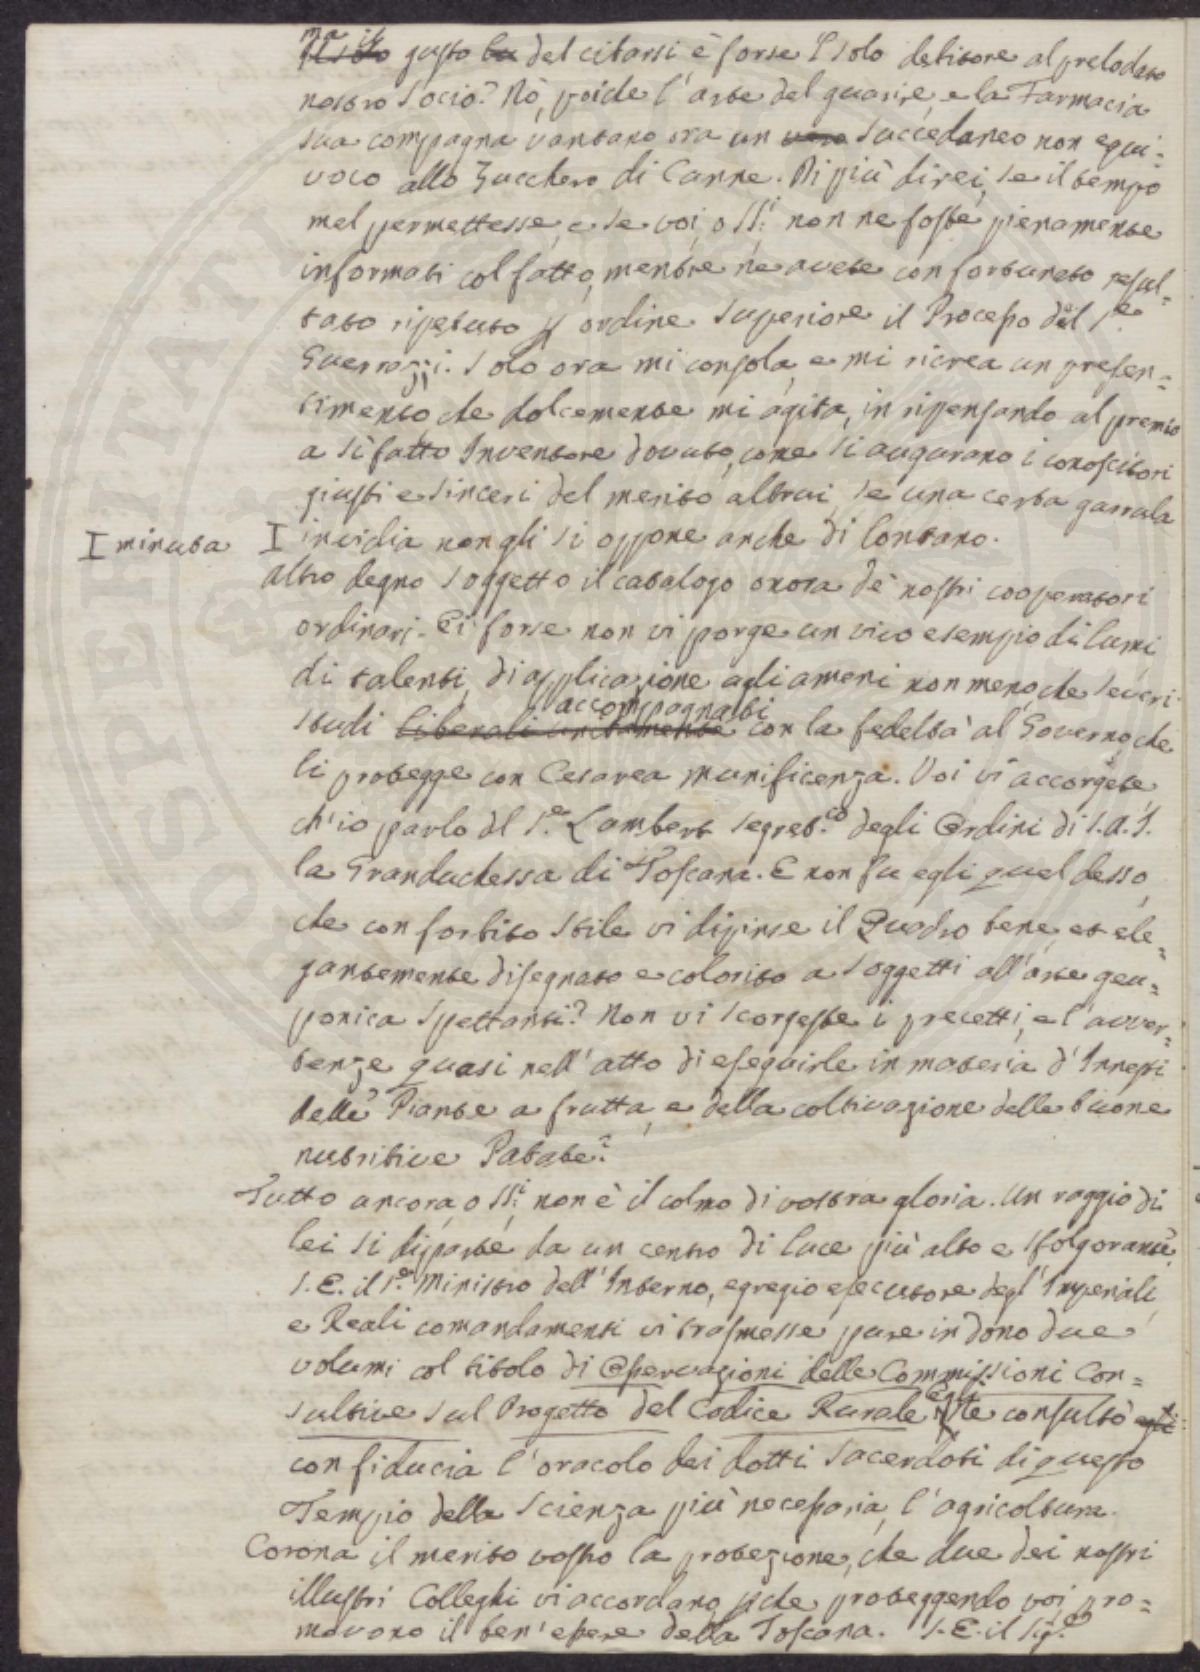 ma il
~~Il solo~~ gusto ~~ha~~ del cibarsi è forse l' solo debitore al prelodato
nostro Socio? Nò, poiche l'arte del guarire, e la Farmacia
sua compagna vantano ora un ~~vero~~ succedaneo non equi=
voco allo Zucchero di Canne. Di più direi, se il tempo
mel permettesse, e se voi, o SS.i non ne foste pienamente
informati col fatto, mentre ne avete con fortunato resul=
tato ripetuto p ordine Superiore il Processo del S.re
Guerrazzi. Solo ora mi consola, e mi ricrea un presen=
timento che dolcemente mi agita, in ripensando al premio
a sì fatto Inventore dovuto, come si augurano i conoscitori
giusti e sinceri del merito altrui, se una certa garrula
I minuta I invidia non gli si oppone anche di lontano.
Altro degno soggetto il catalogo onora de' nostri cooperatori
ordinarj. Ei forse non vi porge un vivo esempio di lumi,
di talenti, di applicazione agli ameni non meno che severi
accompagnati
studi ~~liberali unitamente~~ con la fedeltà al Governo, che
li protegge con Cesarea munificenza. Voi vi accorgete
ch'io parlo del S.re Lambert Segret.io degli Ordini di S.A.I.
la Granduchessa di Toscana. E non fu egli quel desso,
che con forbito stile vi dipinse il Quadro bene, et ele=
gantemente disegnato e colorito a soggetti all'arte geu=
ponica spettanti? Non vi scorgeste i precetti, e l'avver=
tenze quasi nell'atto di eseguirle in materia d'Innesti
delle Piante a frutta, e della coltivazione delle buone
nutritive Patate?
Tutto ancora, o SS.i non è il colmo di vostra gloria. Un raggio di
lei si diparte da un centro di luce più alto e sfolgorante.
S.E. il S.re Ministro dell'Interno, egregio esecutore degl'Imperiali
e Reali comandamenti vi trasmesse pure in dono due
volumi col titolo di Osservazioni delle Commissioni Con=
egli
sultive sul Progetto del Codice Rurale, Ne consultò ~~egli~~
con fiducia l'oracolo dei dotti Sacerdoti di questo
Tempio della Scienza più necessaria, l'agricoltura.
Corona il merito vostro la protezione, che due dei nostri
illustri Colleghi vi accordano, pche proteggendo voi pro=
movono il ben'essere della Toscana. S.E. il Sig.re